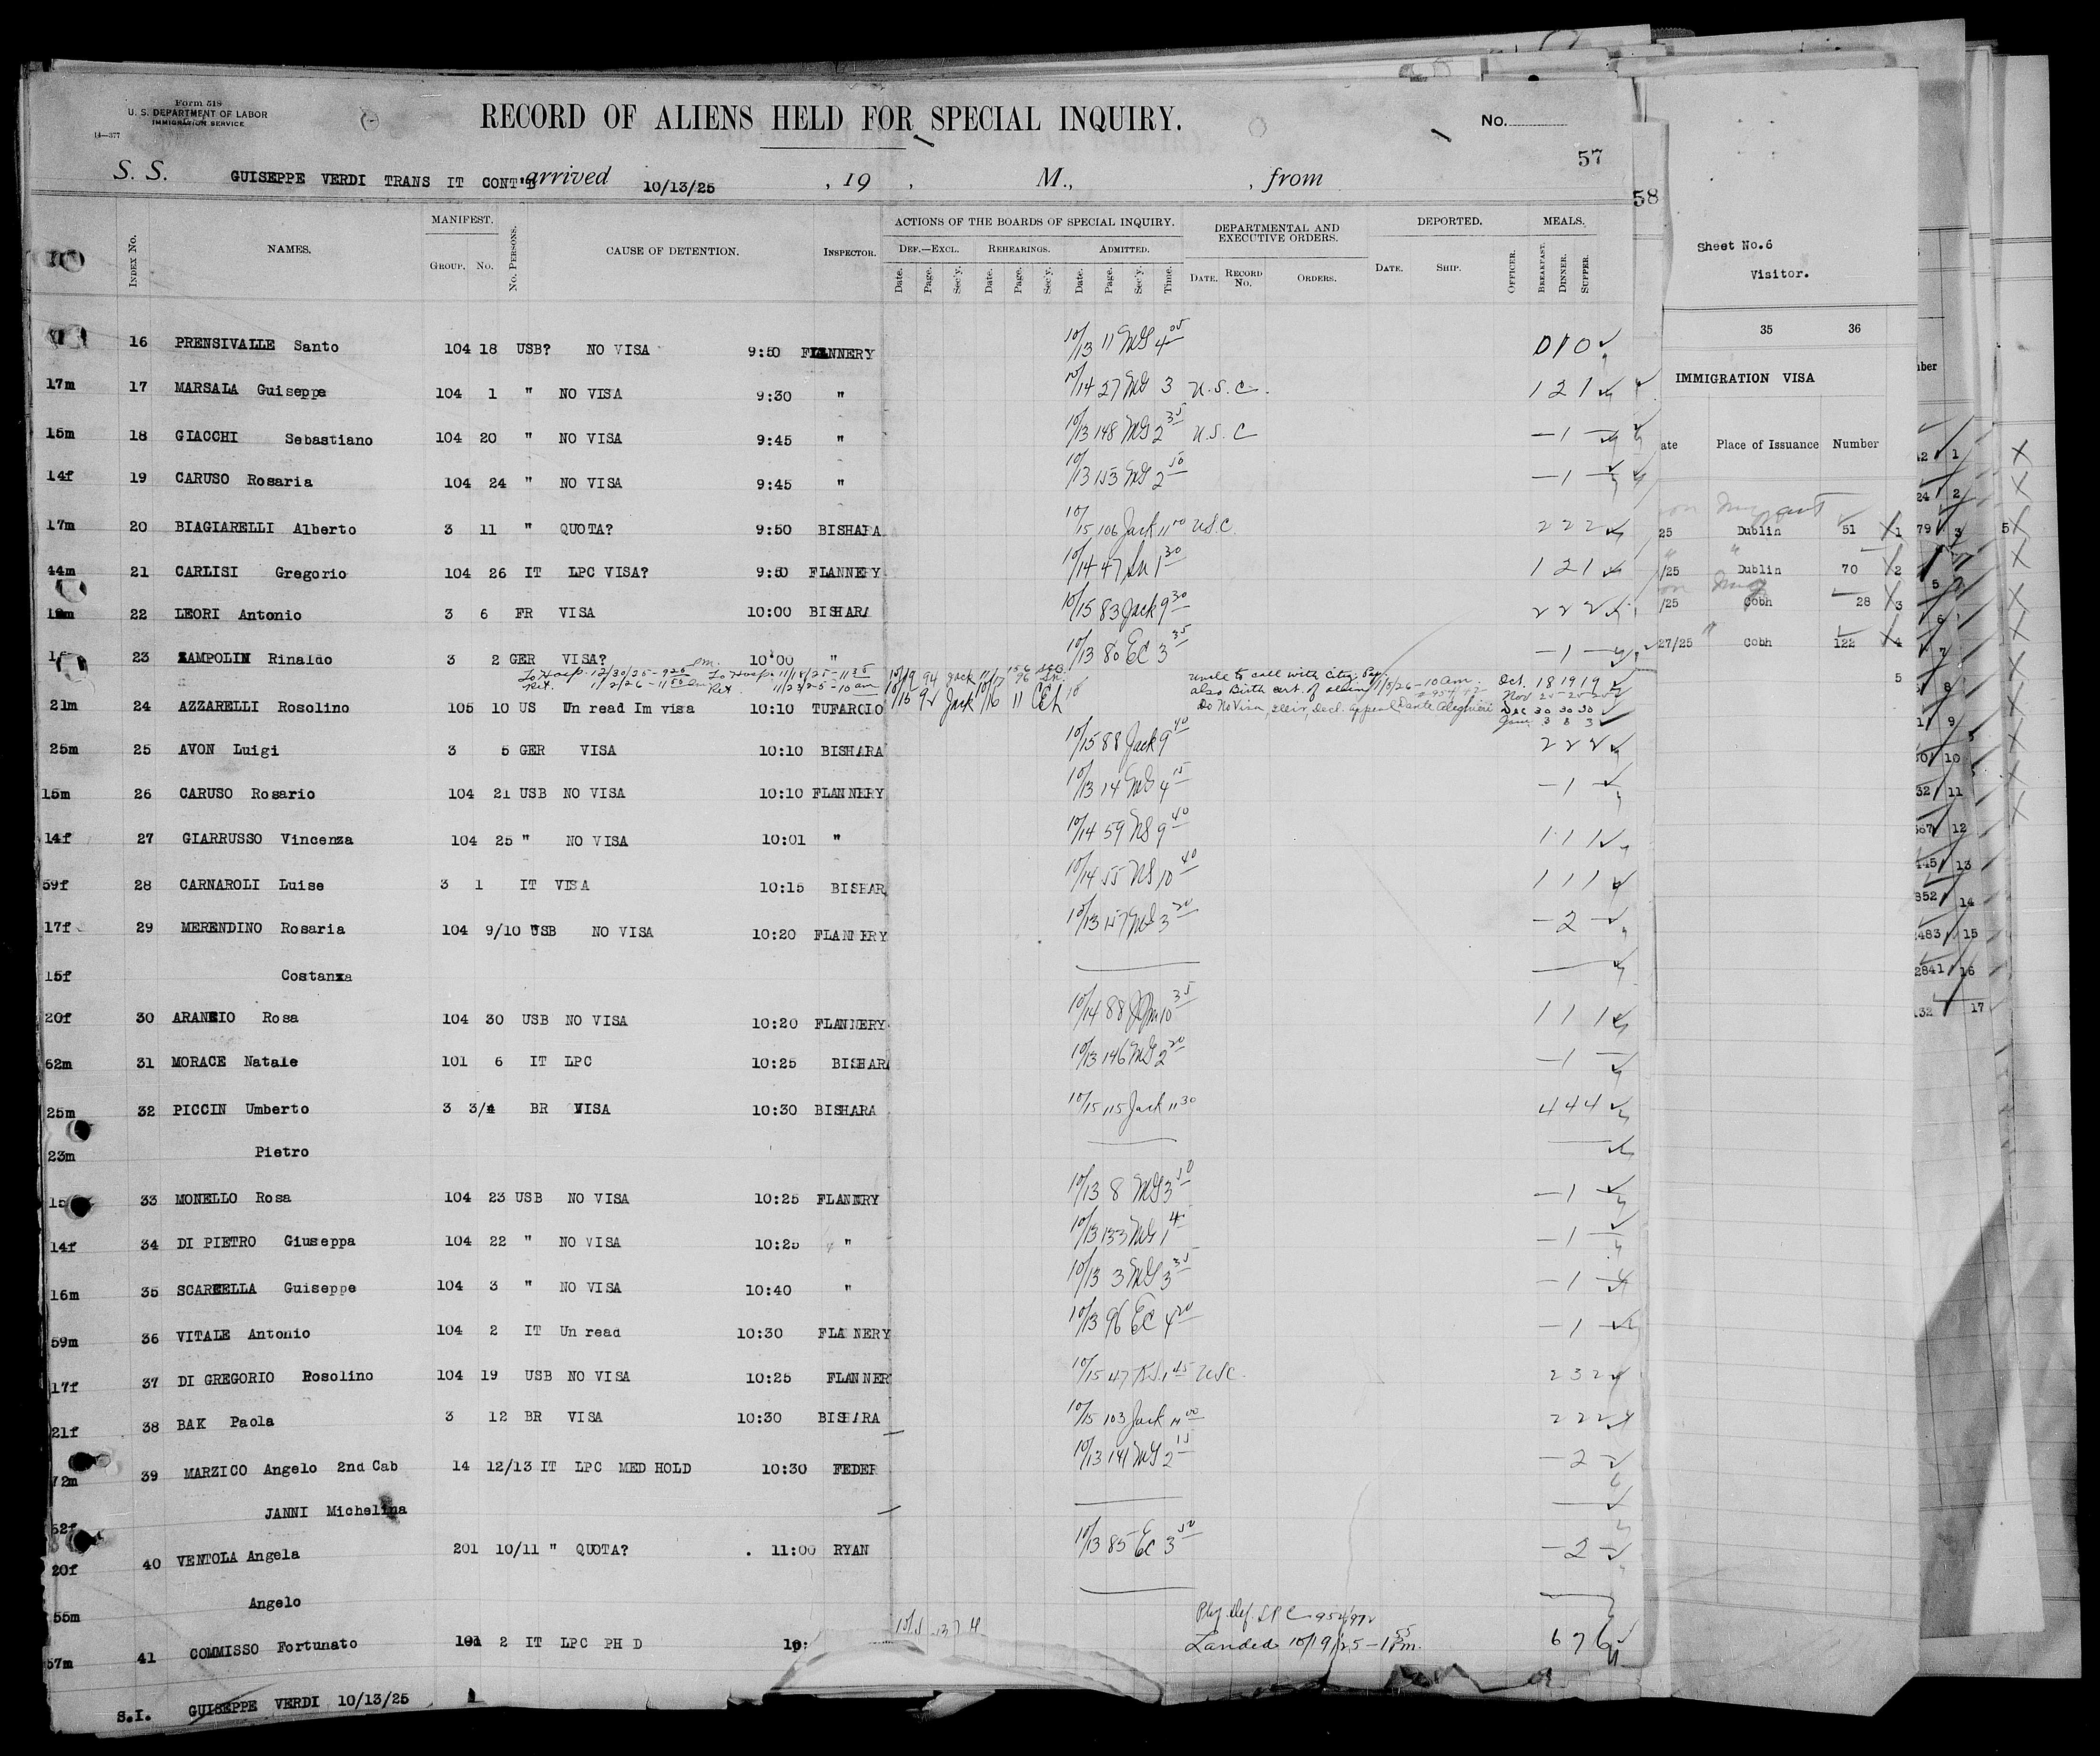 Form 518
U. S. DEPARTMENT OF LABOR
IMMIGRATION SERVICE
14—377
RECORD OF ALIENS HELD FOR SPECIAL INQUIRY.
No.
57
S. S. GUISEPPE VERDI TRANS IT CONT'D arrived 10/13/25 , 19 , M., , from
58
INDEX No. NAMES. MANIFEST. GROUP. No. No. PERSONS. CAUSE OF DETENTION. INSPECTOR. ACTIONS OF THE BOARDS OF SPECIAL INQUIRY. DEPARTMENTAL AND EXECUTIVE ORDERS. DEPORTED. MEALS.
DEF.—EXCL. REHEARINGS. ADMITTED.
Date. Page. Sec'y. Date. Page. Sec'y. Date. Page. Sec'y. Time. DATE. RECORD No. ORDERS. DATE. SHIP. OFFICER. BREAKFAST. DINNER. SUPPER.
16 PRENSIVALLE Santo 104 18 USB? NO VISA 9:50 FLANNERY 10/13 11 MG 4 05
17m 17 MARSALA Guiseppe 104 1 " NO VISA 9:30 " 10/14 27 MG 3 U.S.C. 1 2 1
15m 18 GIACCHI Sebastiano 104 20 " NO VISA 9:45 " 10/13 148 MG 2 35 U.S.C — 1 —
14f 19 CARUSO Rosaria 104 24 " NO VISA 9:45 " 10/13 153 MG 2 50 — 1 —
17m 20 BIAGIARELLI Alberto 3 11 " QUOTA? 9:50 BISHARA 10/15 106 Jack 11 00 U.S.C. 2 2 2
44m 21 CARLISI Gregorio 104 26 IT LPC VISA? 9:50 FLANNERY 10/14 47 Sn 1 30 1 2 1
22 LEORI Antonio 3 6 FR VISA 10:00 BISHARA 10/15 83 Jack 9 30 2 2 2
23 ZAMPOLIN Rinaldo 3 2 GER VISA? 10:00 " 10/13 80 EC 3 35 — 1 —
To Hosp. 12/30/25 - 9 25 am. To Hosp. 11/18/25 - 11 35
Ret. 1/2/26 - 11 55 am Ret. 11/23/25 - 10 am
uncle to call with City. Pap.
also Birth cert. of alien 1/3/26 - 10 am.
21m 24 AZZARELLI Rosolino 105 10 US Un read Im visa 10:10 TUFAROLO 10/15 92 Jack
Oct. 18 19 19
Nov 25 25 25
Dec 30 30 30
Jan. 3 3 3
25m 25 AVON Luigi 3 5 GER VISA 10:10 BISHARA 10/15 88 Jack 9 40 2 2 2
15m 26 CARUSO Rosario 104 21 USB NO VISA 10:10 FLANNERY 10/13 14 MG 4 15 — 1 —
14f 27 GIARRUSSO Vincenza 104 25 " NO VISA 10:01 " 10/14 59 NS 9 40 1 1 1
59f 28 CARNAROLI Luise 3 1 IT VISA 10:15 BISHAR 10/14 55 NS 10 40 1 1 1
17f 29 MERENDINO Rosaria 104 9/10 USB NO VISA 10:20 FLANNERY 10/13 157 MG 3 20 — 2 —
15f Costanza
20f 30 ARANZIO Rosa 104 30 USB NO VISA 10:20 FLANNERY 10/14 88 10 35 1 1 1
62m 31 MORACE Natale 101 6 IT LPC 10:25 BISHARA 10/13 146 MG 2 20 — 1 —
25m 32 PICCIN Umberto 3 3/4 BR VISA 10:30 BISHARA 10/15 115 Jack 11 30 4 4 4
23m Pietro
15 33 MONELLO Rosa 104 23 USB NO VISA 10:25 FLANNRY 10/13 8 MG 3 50 — 1 —
14f 34 DI PIETRO Giuseppa 104 22 " NO VISA 10:25 " 10/13 133 MG 1 — 1 —
16m 35 SCARCELLA Guiseppe 104 3 " NO VISA 10:40 " 10/13 3 MG 3 35 — 1 —
59m 36 VITALE Antonio 104 2 IT Un read 10:30 FLA NERY 10/13 96 EC 4 20 — 1 —
17f 37 DI GREGORIO Rosolino 104 19 USB NO VISA 10:25 FLANNER 10/15 47 1 45 USC. 2 3 2
21f 38 BAK Paola 3 12 BR VISA 10:30 BISHARA 10/15 103 Jack 11 00 2 2 2
72m 39 MARZICO Angelo 2nd Cab 14 12/13 IT LPC MED HOLD 10:30 FEDER 10/13 141 MG 2 15 — 2 —
52f JANNI Michelina
20f 40 VENTOLA Angela 201 10/11 " QUOTA? 11:00 RYAN 10/13 85 EC 3 50 — 2 —
55m Angelo
57m 41 COMMISSO Fortunato 101 2 IT LPC PH D 10: Phy. def. LPC
Landed 10/19/25 - 1 55 Pm. 6 7 6
S.I. GUISEPPE VERDI 10/13/25
Sheet No.6
Visitor.
35 36
IMMIGRATION VISA
ate Place of Issuance Number
25 Dublin 51 1
/25 Dublin 70 2
/25 Cobh 28 3
27/25 Cobh 122 4
5